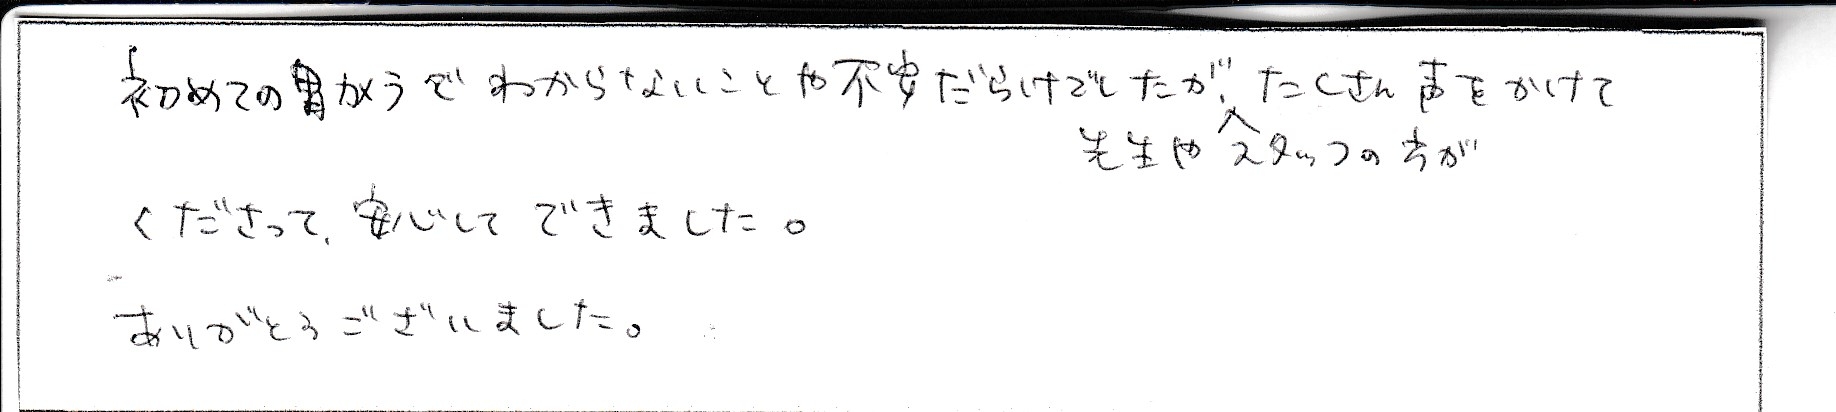 初めての胃カメラでわからないことや不安だらけでしたが、たくさん声をかけて
先生やスタッフの方が
くださって、安心してできました。
ありがとうございました。